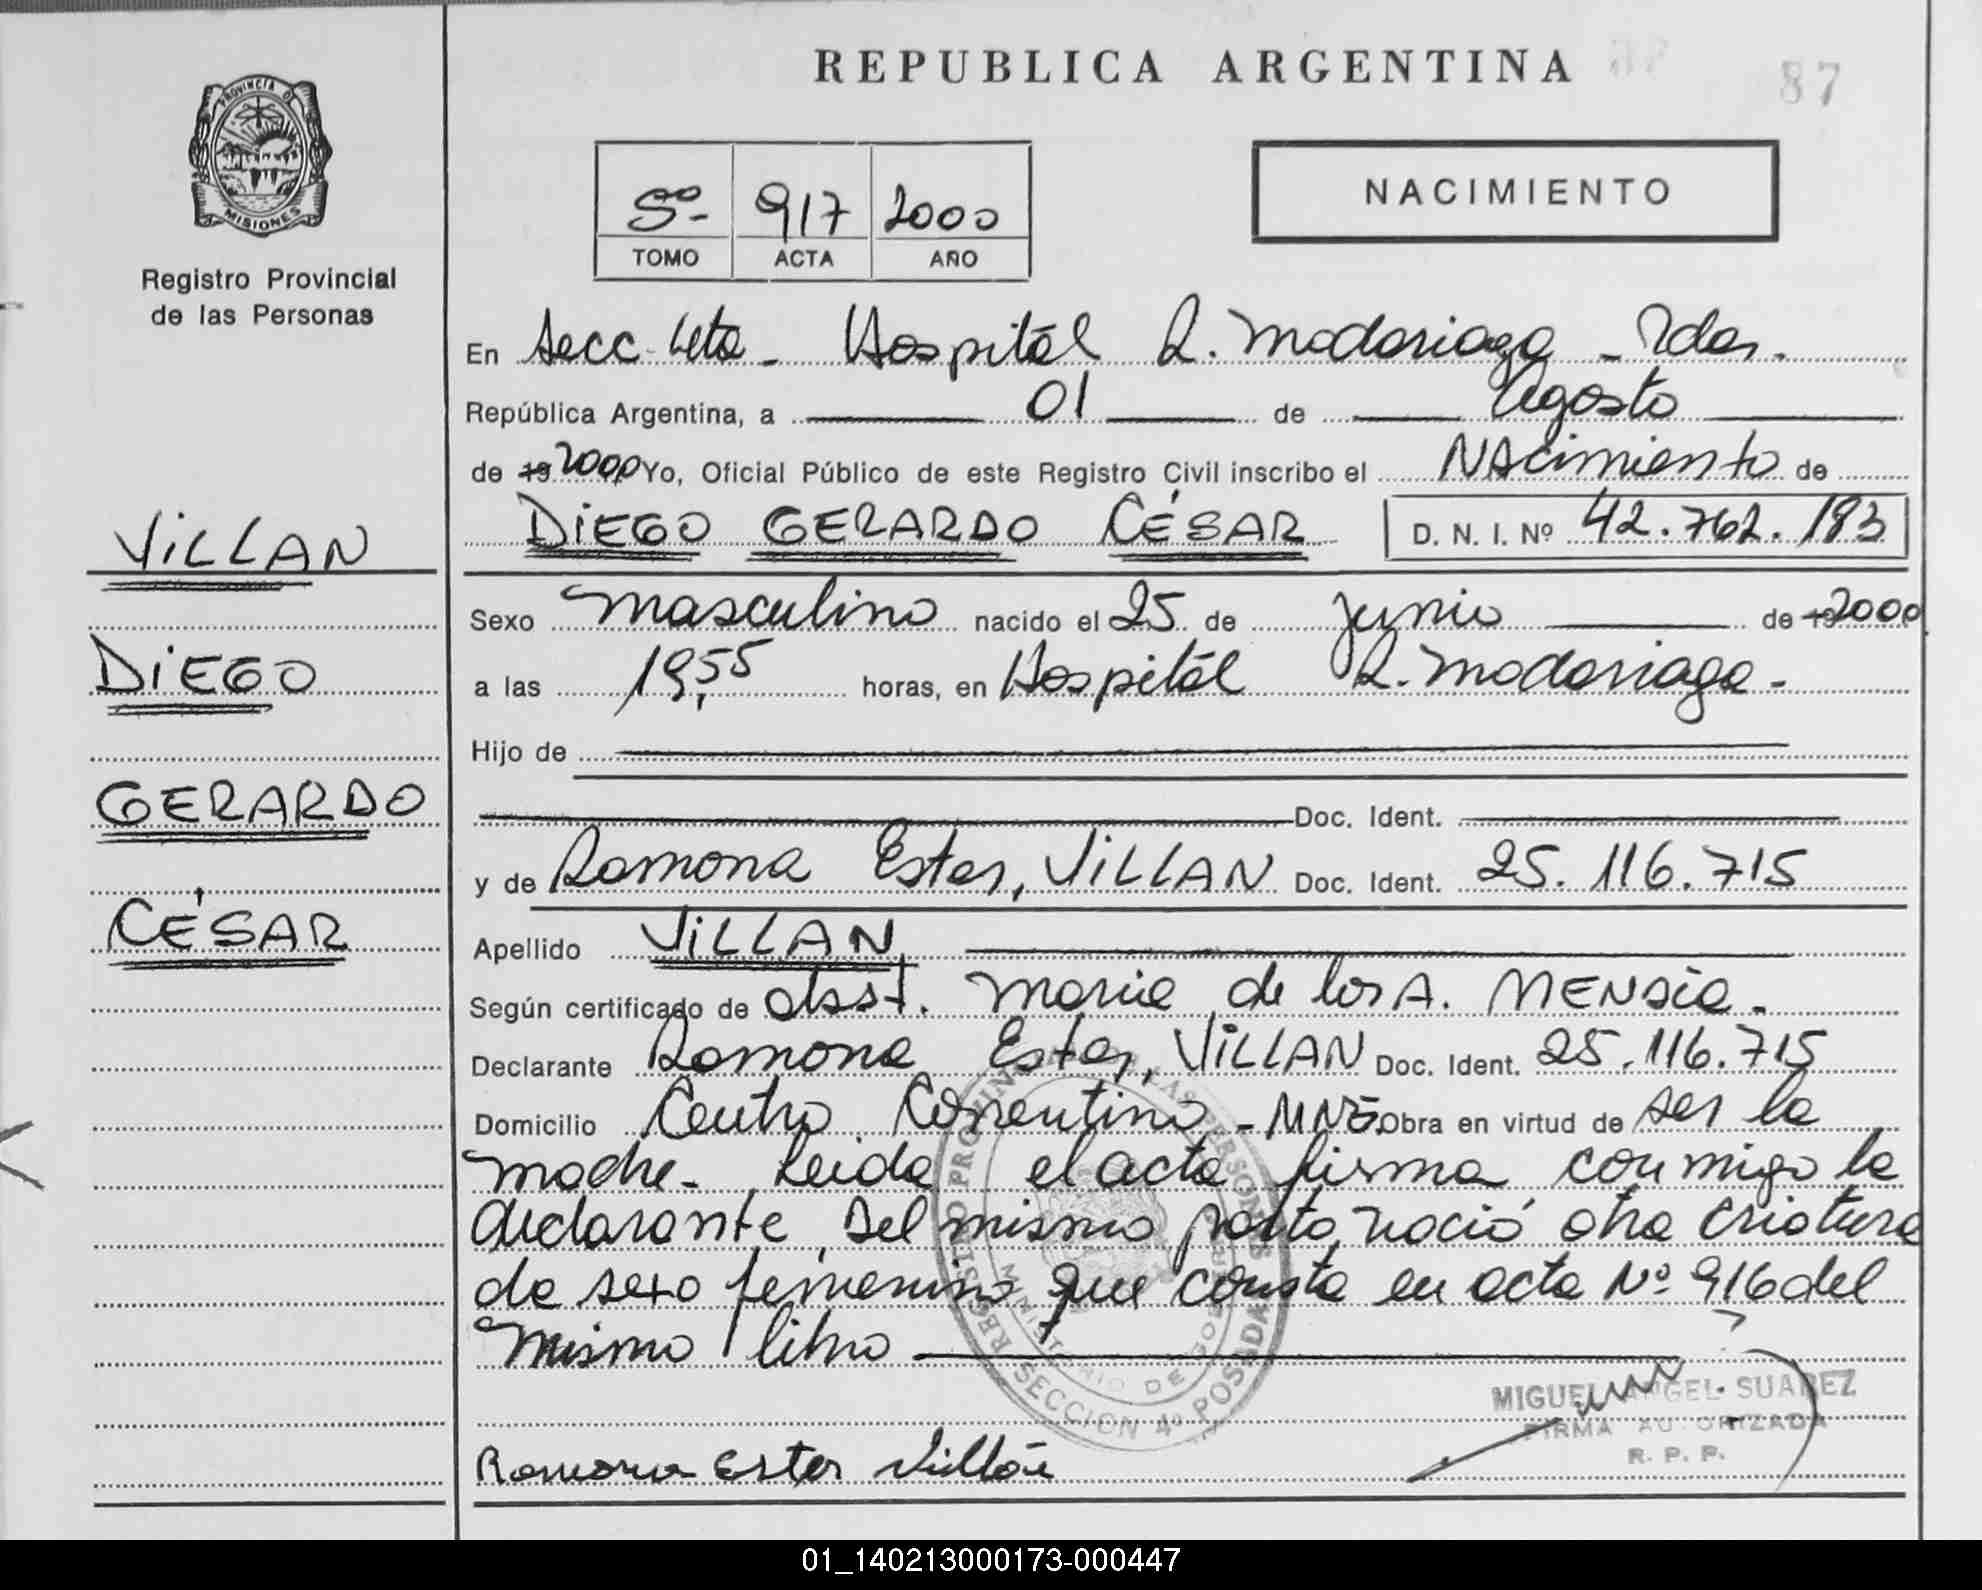 REPUBLICA ARGENTINA
87
PROVINCIA DE
MISIONES
Registro Provincial
de las Personas
5º- 917 2000
TOMO ACTA AÑO
NACIMIENTO
En Secc 4ta - Hospitál R. Madariaga - Pdas.
República Argentina, a 01 de Agosto
de 19 2000 Yo, Oficial Público de este Registro Civil inscribo el NAcimiento de
DiEGO GERARDO CÉSAR D. N. I. Nº 42.762.183
VILLAN
DiEGO
GERARDO
CÉSAR
Sexo masculino nacido el 25 de junio de 19 2000
a las 19,55 horas, en Hospitál R. Madariaga -
Hijo de
Doc. Ident.
y de Ramona Ester, ViLLAN Doc. Ident. 25.116.715
Apellido ViLLAN
Según certificado de obst. Maria de los A. MENDIA -
Declarante Ramona Ester, ViLLAN Doc. Ident. 25.116.715
Domicilio Centro Correntino - Obra en virtud de ser la
madre - Leida el acta firma conmigo la
declarante, Del mismo parto nació otra criatura
de sexo femenino que consta en acta Nº 916 del
mismo libro
REGISTRO PROVINCIAL DE LAS PERSONAS
MINISTERIO DE GOBIERNO
SECCION 4º POSADAS
MIGUEL ANGEL SUAREZ
FIRMA AUTORIZADA
R. P. P.
Ramona Ester Villán
01_140213000173-000447